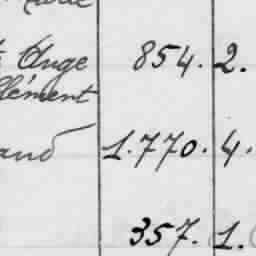 Ange 854. 2.
Clément
and 1.770. 4.
357. 1.